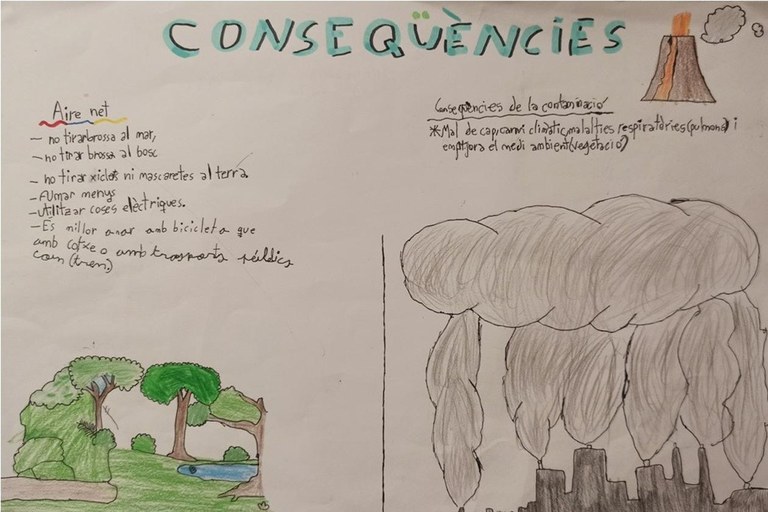 CONSEQÜÈNCIES
Aire net
- no tirar brossa al mar,
- no tirar brossa al bosc
- no tirar xiclets ni mascaretes al terra
- fumar menys
- utilitzar coses elèctriques.
- És millor anar amb bicicleta que
amb cotxe o amb trasports públics
com (tren.)
Conseqüències de la contaminació
*Mal de cap, canvi climàtic, malalties respiratòries (pulmons) i
empitjora el medi ambient (vegetació)